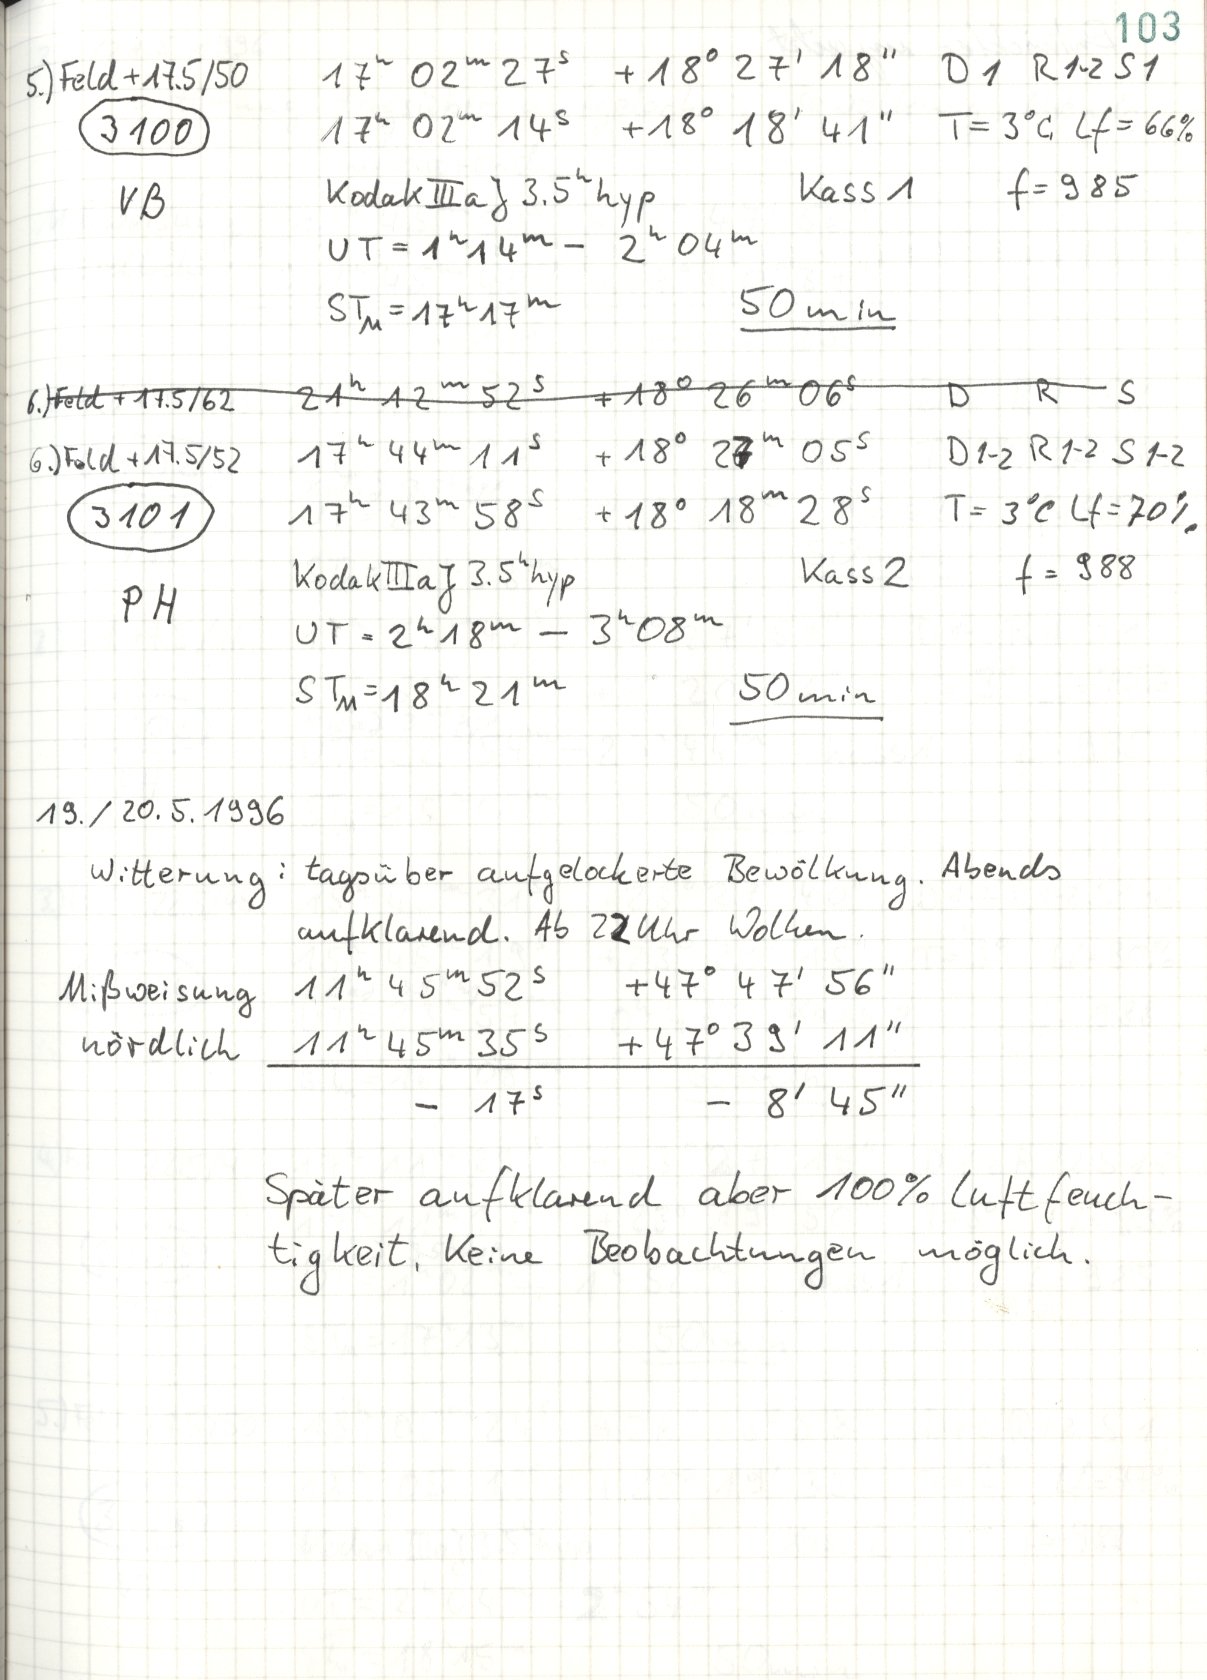 103
5.) Feld + 17.5/50 17h 02m 27s +18° 27' 18" D1 R1-2 S1
3100 17h 02m 14s +18° 18' 41" T= 3°C Lf= 66%
VB Kodak IIIaJ 3.5h hyp Kass 1 f= 985
UT = 1h14m – 2h 04m
STM = 17h 17m 50 min
6.) Feld + 17.5/62 21h 12m 52s +18° 26m 06s D R S
6.) Feld + 17.5/52 17h 44m 11s +18° 27m 05s D1-2 R1-2 S1-2
3101 17h 43m 58s +18° 18m 28s T= 3°C Lf= 70%
Kodak IIIaJ 3.5h hyp Kass 2 f= 988
PH UT = 2h 18m – 3h 08m
STM = 18h 21m 50 min
19./20.5.1996
Witterung: tagsüber aufgelockerte Bewölkung. Abends
aufklarend. Ab 22 Uhr Wolken.
Mißweisung 11h 45m 52s +47° 47' 56"
nördlich 11h 45m 35s +47° 39' 11"
– 17s – 8' 45"
Später aufklarend aber 100% Luftfeuch-
tigkeit. Keine Beobachtungen möglich.